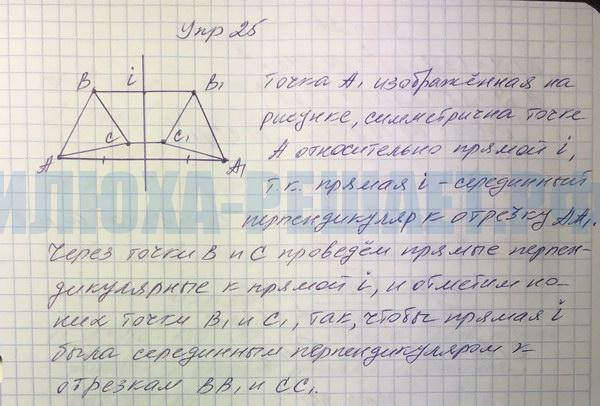 Упр 25
B i B₁
C C₁
A A₁
Точка A₁ изображённая на
рисунке, симметрична точке
A относительно прямой i,
т.к. прямая i - серединный
перпендикуляр к отрезку AA₁.
Через точки B и C проведём прямые перпен-
дикулярные к прямой i, и отметим на
них точки B₁ и C₁, так, чтобы прямая i
была серединным перпендикуляром к
отрезкам BB₁ и CC₁.